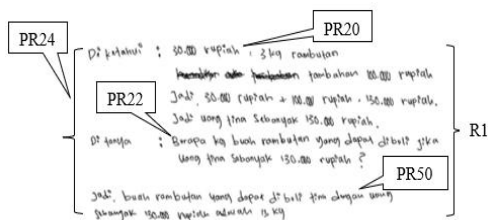 PR24
PR20
Di ketahui : 30.00 rupiah , 3 kg rambutan
tambahan 100.00 rupiah
Jadi, 30.00 rupiah + 100.00 rupiah = 130.00 rupiah.
Jadi uang tina sebanyak 130.00 rupiah.
PR22
Di tanya : Berapa kg buah rambutan yang dapat dibeli jika
uang tina sebanyak 130.00 rupiah ?
R1
PR50
Jadi, buah rambutan yang dapat di beli tina dengan uang
sebanyak 130.00 rupiah adalah 13 kg